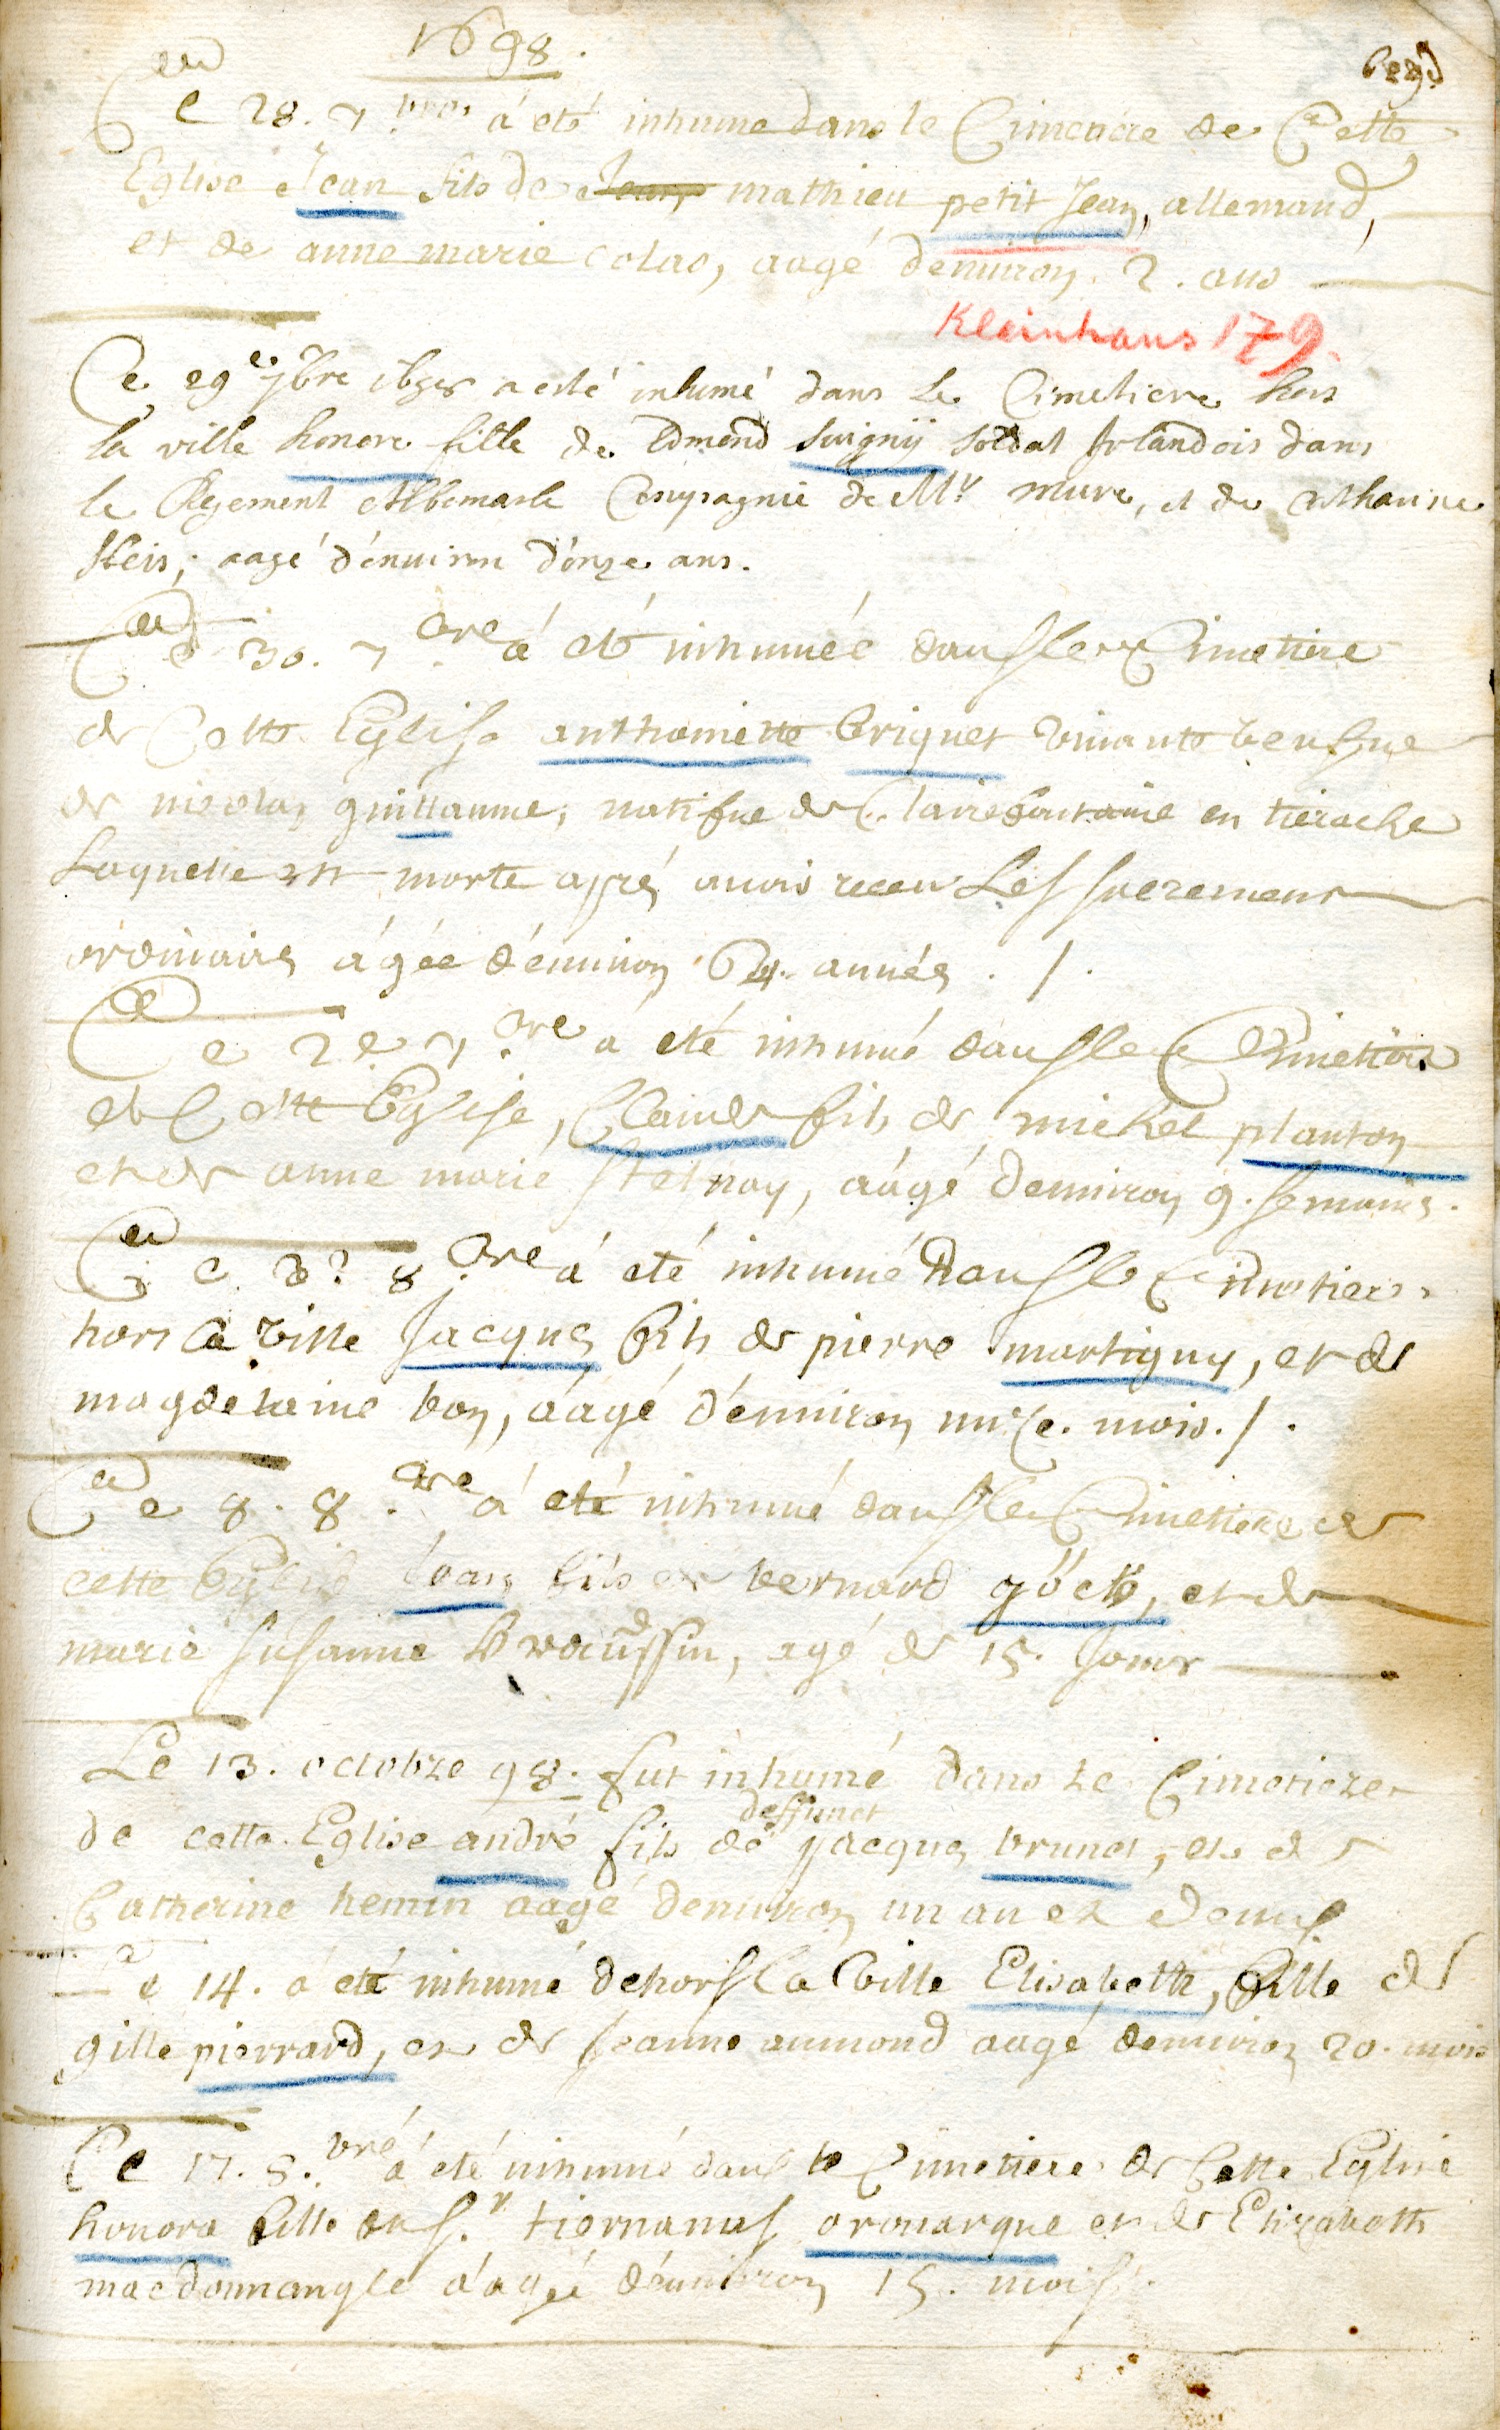 1698.
Ce 28. 7.bre à eté inhumé dans le Cimetiere de Cette
Eglise Jean fils de Jean mathieu petit Jean, allemand,
et de anne marie Colas, aagé denuiron. 2. ans
Kleinhans 179.
Ce 29e 7bre 1698 a esté inhumé dans Le Cimetiere hors
la ville honore fille de Edmond Suignÿ soldat Irlandois dans
le Regement Albemarle Compagnie de Mr mure, et de Catharine
Heis, aagé d'enuiron d'onze ans.
Ce 30. 7.bre à eté inhumée dans le Cimetiere
de Cette Eglise anthoinette briquet viuante veufue
de nicolas guillaume, natifue de Clairefontaine en tierache
Laquelle est morte aprés auois receu Les sacremens
ordinaires ágée d'énuiron 64. années . / .
Ce 2e 7.bre a eté inhumé dans le Cimetiere
de Cette Eglise, Claude fils de michel planton
et de anne marie stetnay, aágé denuiron 9. semaines.
Ce 3e 8.bre á eté inhumé dans le Cimetiere
hors la ville Jacques fils de pierre martigny, et de
magdelaine bon, aágé d'énuiron unze. mois. / .
Ce 8. 8.bre á eté inhumé dans le Cimetiere de
cette Eglise Jean fils de bernard göetz, et de
marie susanne, agé de 15. Jours
Le 13. octobre 98. fut inhumé dans le Cimetiere
de cette Eglise andré fils de deffunct jacques brunet, et de
Catherine hemin aagé denuiron un an et demis
Le 14. a eté inhumé dehors la ville Elisabeth, fille de
gille pierrard, et de Jeanne aumond aagé denuiron 20. mois
Ce 17. 8.bre á eté inhumé dans le Cimetiere de Cette Eglise
honora fille du s.r tiernanus orouarque et de Elizabeth
macdonnangle aágé d'énuiron 15. mois.